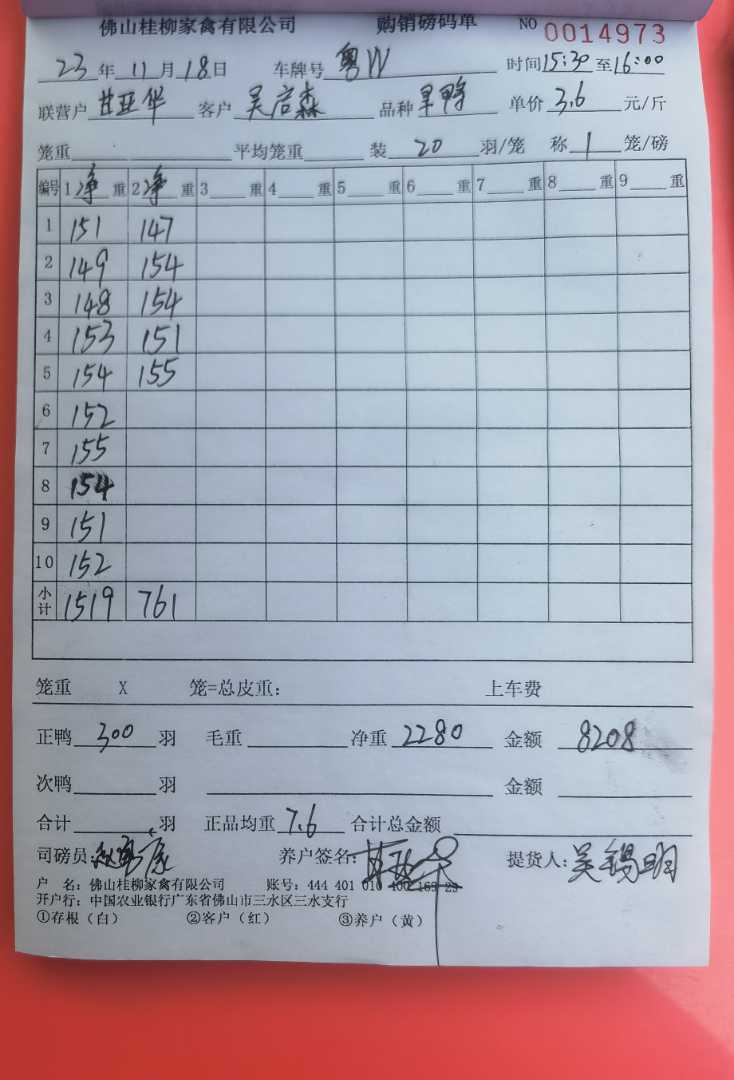 佛山桂柳家禽有限公司 购销磅码单 NO 0014973
23年11月18日 车牌号 粤W 时间15:30至16:00
联营户 甘亚华 客户 吴启森 品种 旱鸭 单价 3.6 元/斤
笼重 平均笼重 装 20 羽/笼 称 1 笼/磅
编号 1 净 重 2 净 重 3 重 4 重 5 重 6 重 7 重 8 重 9 重
1 151 147
2 149 154
3 148 154
4 153 151
5 154 155
6 152
7 155
8 154
9 151
10 152
小计 1519 761
笼重 X 笼=总皮重: 上车费
正鸭 300 羽 毛重 净重 2280 金额 8208
次鸭 羽 金额
合计 羽 正品均重 7.6 合计总金额
司磅员: 养户签名: 提货人: 吴锡明
户 名: 佛山桂柳家禽有限公司 账号: 444 401 010 400 163 23
开户行: 中国农业银行广东省佛山市三水区三水支行
①存根（白） ②客户（红） ③养户（黄）